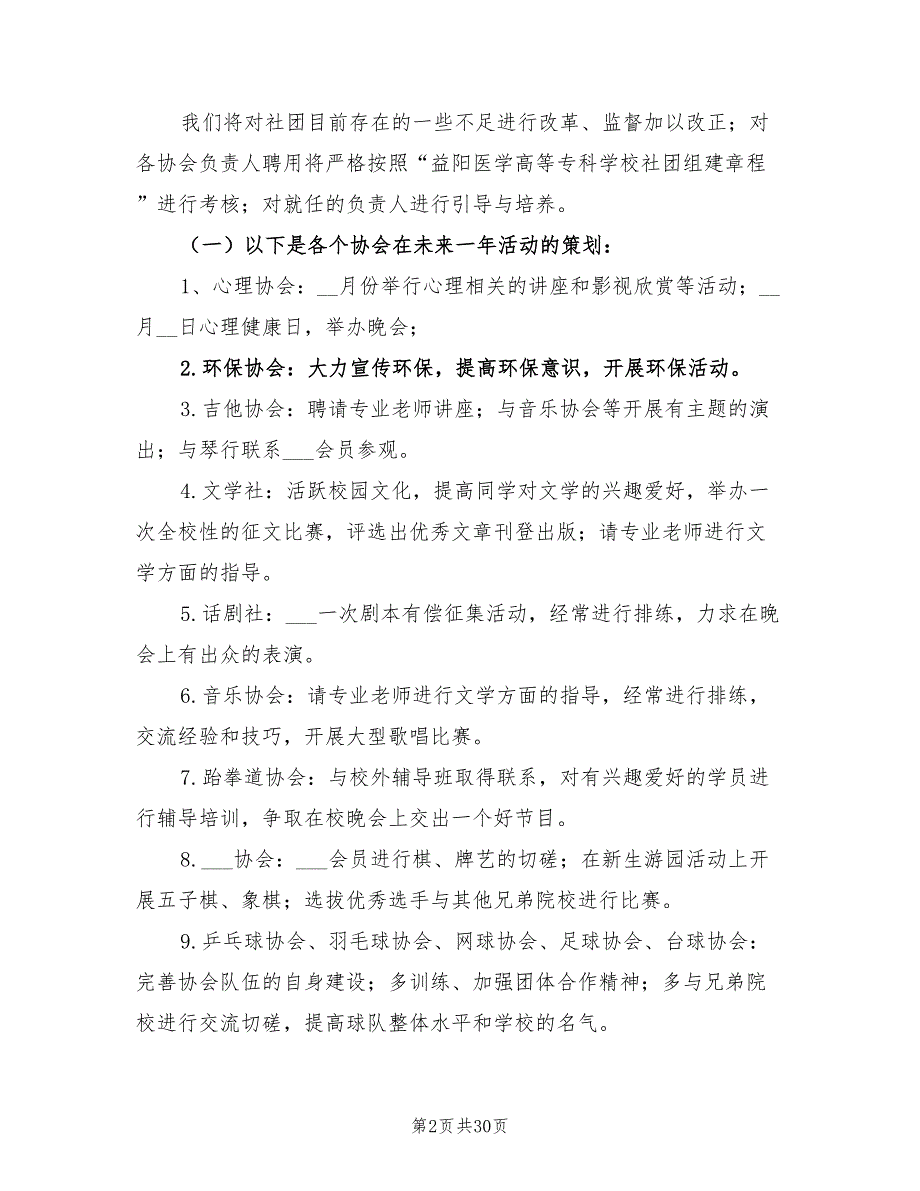 我们将对社团目前存在的一些不足进行改革、监督加以改正；对
各协会负责人聘用将严格按照“益阳医学高等专科学校社团组建章程
”进行考核；对就任的负责人进行引导与培养。
（一）以下是各个协会在未来一年活动的策划：
1、心理协会：__月份举行心理相关的讲座和影视欣赏等活动；__
月__日心理健康日，举办晚会；
2.环保协会：大力宣传环保，提高环保意识，开展环保活动。
3.吉他协会：聘请专业老师讲座；与音乐协会等开展有主题的演
出；与琴行联系___会员参观。
4.文学社：活跃校园文化，提高同学对文学的兴趣爱好，举办一
次全校性的征文比赛，评选出优秀文章刊登出版；请专业老师进行文
学方面的指导。
5.话剧社：___一次剧本有偿征集活动，经常进行排练，力求在晚
会上有出众的表演。
6.音乐协会：请专业老师进行文学方面的指导，经常进行排练，
交流经验和技巧，开展大型歌唱比赛。
7.跆拳道协会：与校外辅导班取得联系，对有兴趣爱好的学员进
行辅导培训，争取在校晚会上交出一个好节目。
8.___协会：___会员进行棋、牌艺的切磋；在新生游园活动上开
展五子棋、象棋；选拔优秀选手与其他兄弟院校进行比赛。
9.乒乓球协会、羽毛球协会、网球协会、足球协会、台球协会：
完善协会队伍的自身建设；多训练、加强团体合作精神；多与兄弟院
校进行交流切磋，提高球队整体水平和学校的名气。
第2页共30页